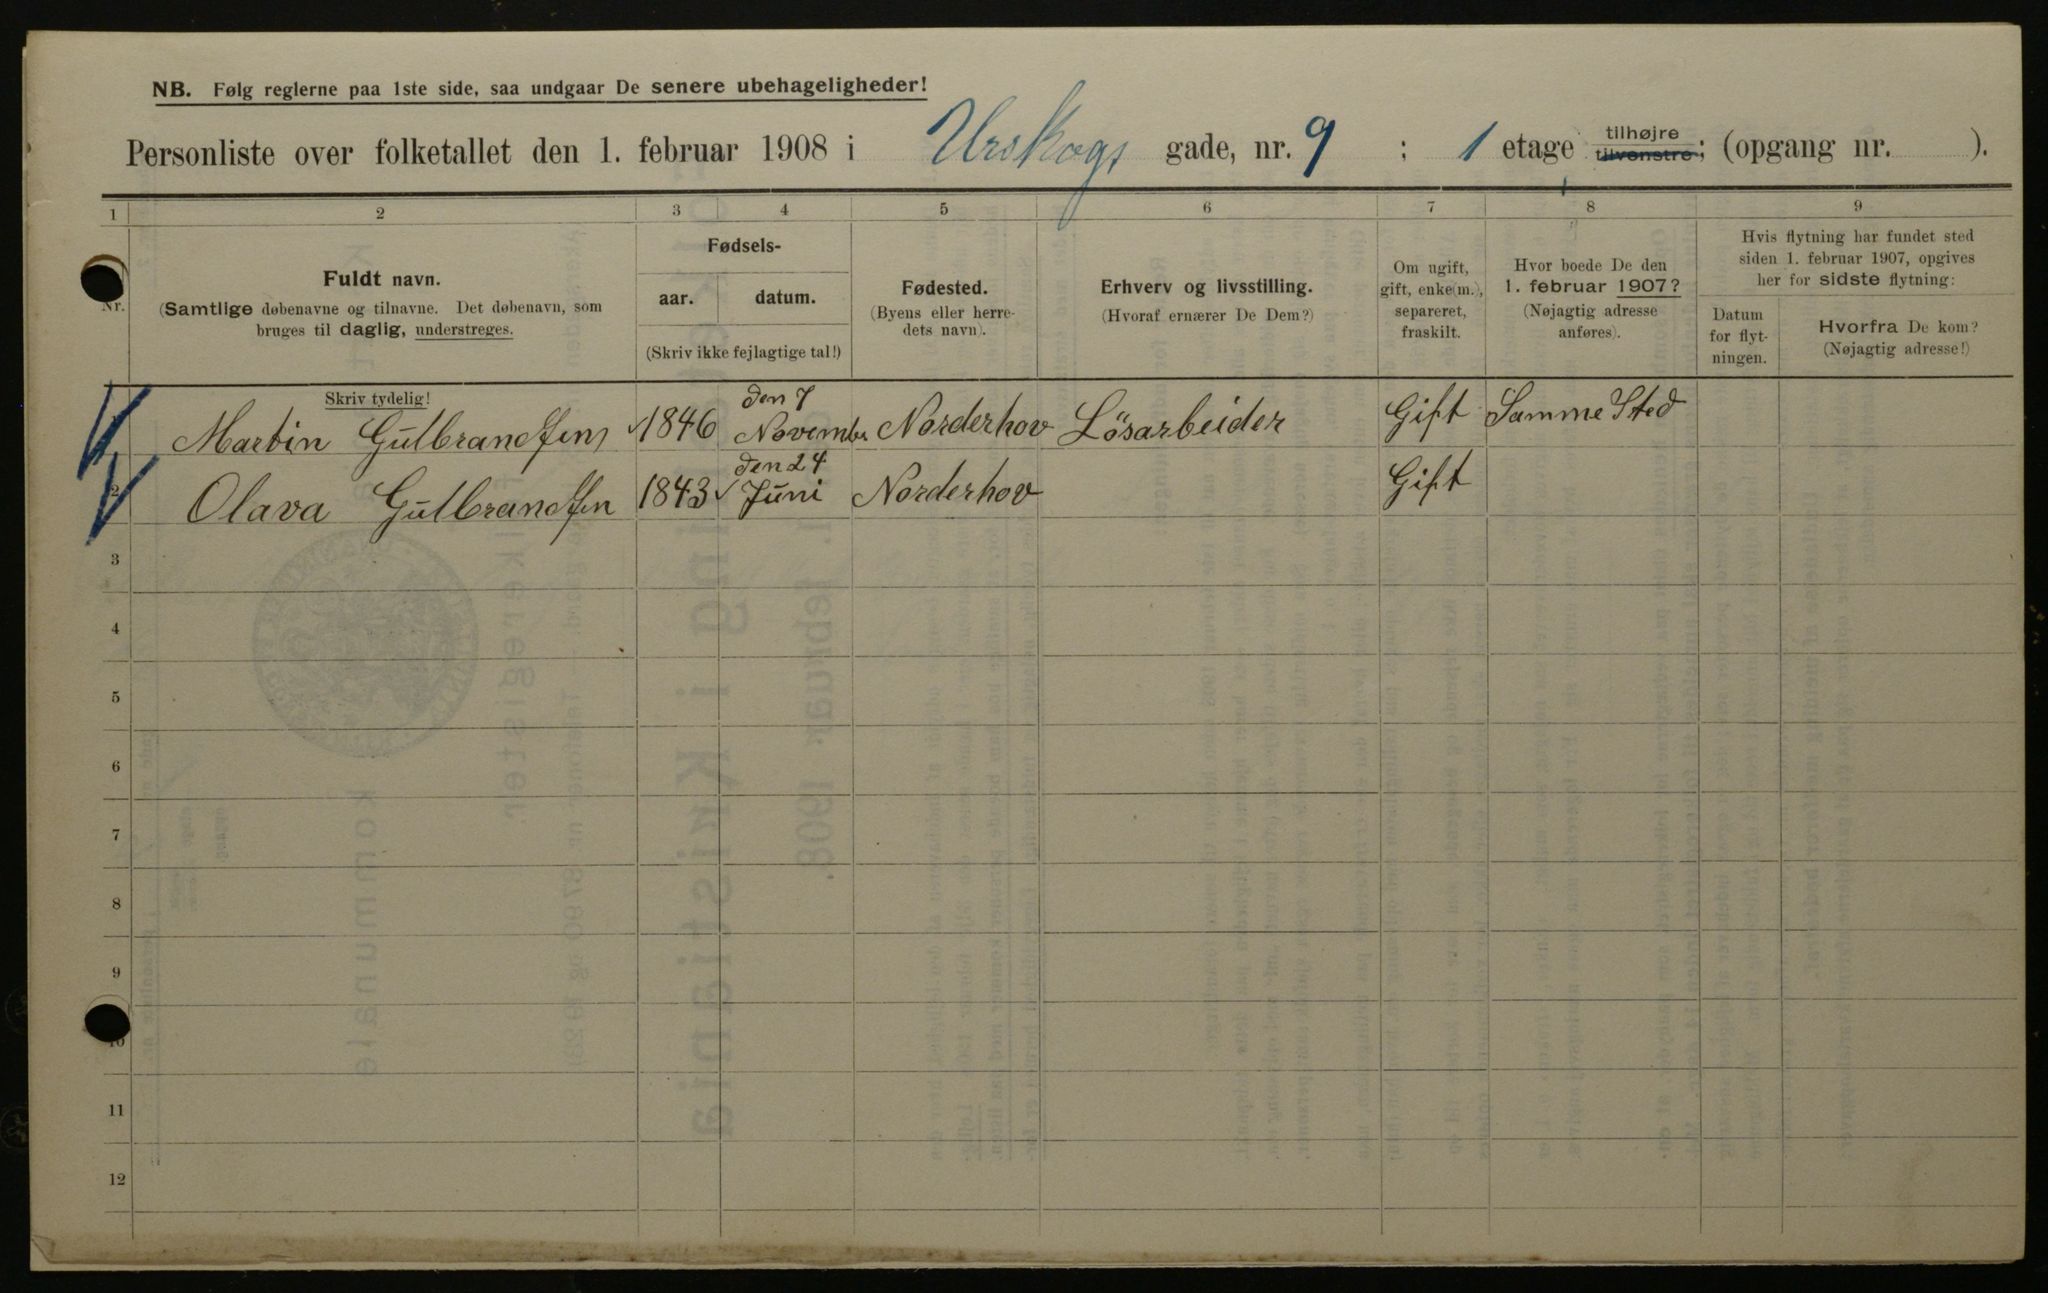 NB. Følg reglerne paa 1ste side, saa undgaar De senere ubehageligheder!
Personliste over folketallet den 1. februar 1908 i Urskogs gade, nr. 9 ; 1 etage tilhøjre tilvenstre; (opgang nr. ).
1 2 3 4 5 6 7 8 9
Nr.
Fuldt navn.
(Samtlige døbenavne og tilnavne. Det døbenavn, som
bruges til daglig, understreges.
Fødsels-
aar. datum.
(Skriv ikke fejlagtige tal!)
Fødested.
(Byens eller herre-
dets navn).
Erhverv og livsstilling.
(Hvoraf ernærer De Dem?)
Om ugift,
gift, enke(m.),
separeret,
fraskilt.
Hvor boede De den
1. februar 1907?
(Nøjagtig adresse
anføres).
Hvis flytning har fundet sted
siden 1. februar 1907, opgives
her for sidste flytning:
Datum
for flyt-
ningen.
Hvorfra De kom?
(Nøjagtig adresse!)
Skriv tydelig!
den 7
Martin Gulbrandsen 1846 November Norderhov Lösarbeider Gift Samme Sted
den 24
2 Olava Gulbrandsen 1843 Juni Norderhov Gift
3
4
5
6
7
8
9
10
11
12